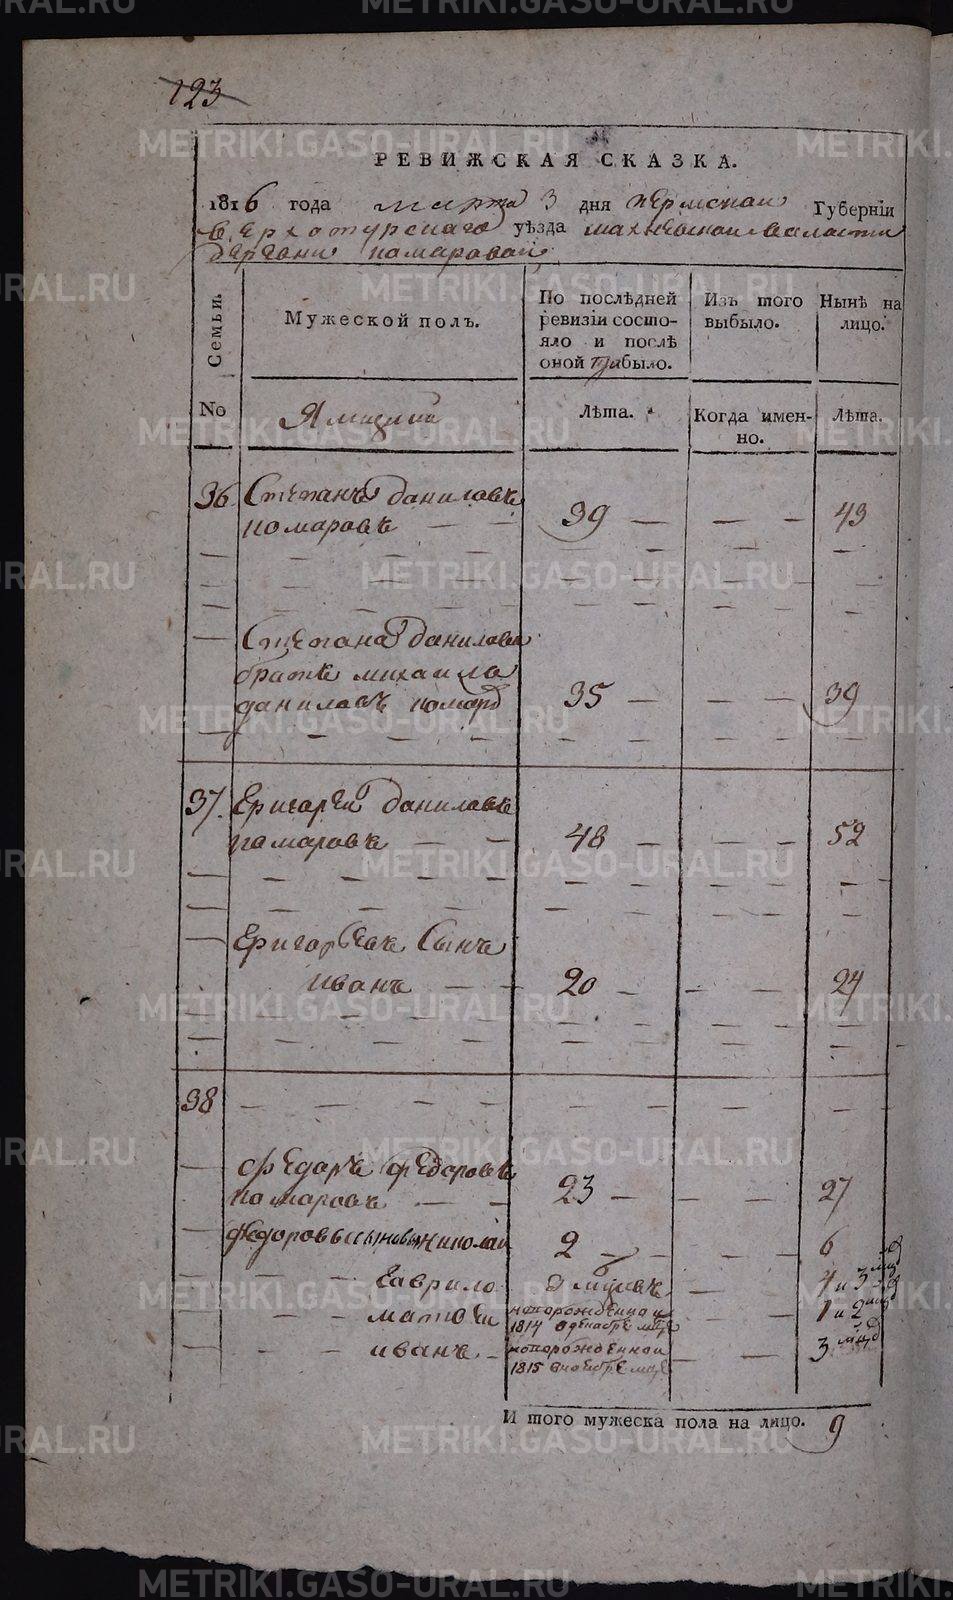 123
РЕВИЖСКАЯ СКАЗКА.
1816 года марта 3 дня Пермскаи Губернїи
Верхотурскаго уѣзда махневскои валасти
деревни комаровой
Семьи. Мужеской полъ. По послѣдней ревизїи состояло и послѣ оной прибыло. Изъ того выбыло. Нынѣ на лицо.
No Ямщики Лѣта. Когда именно. Лѣта.
36 Степанъ даниловъ
комаровъ — — 39 — — — 43
Степана данилова
братъ михаила
даниловъ комаровъ 35 — — — 39
37. Григорей даниловъ
комаровъ — — 48 — — — 52
Григорьевъ сынъ
иванъ — — 20 — — — 24
38
Федаръ Федоровъ
комаровъ — — 23 — — — 27
Федоровы сыновья николаи 2 — — 6
Гаврило 4 и 3
матфеи новорожденнои 1814 1 и 2
иванъ новорожденнои 1815 3
И того мужеска пола на лицо. 9
METRIKI.GASO-URAL.RU